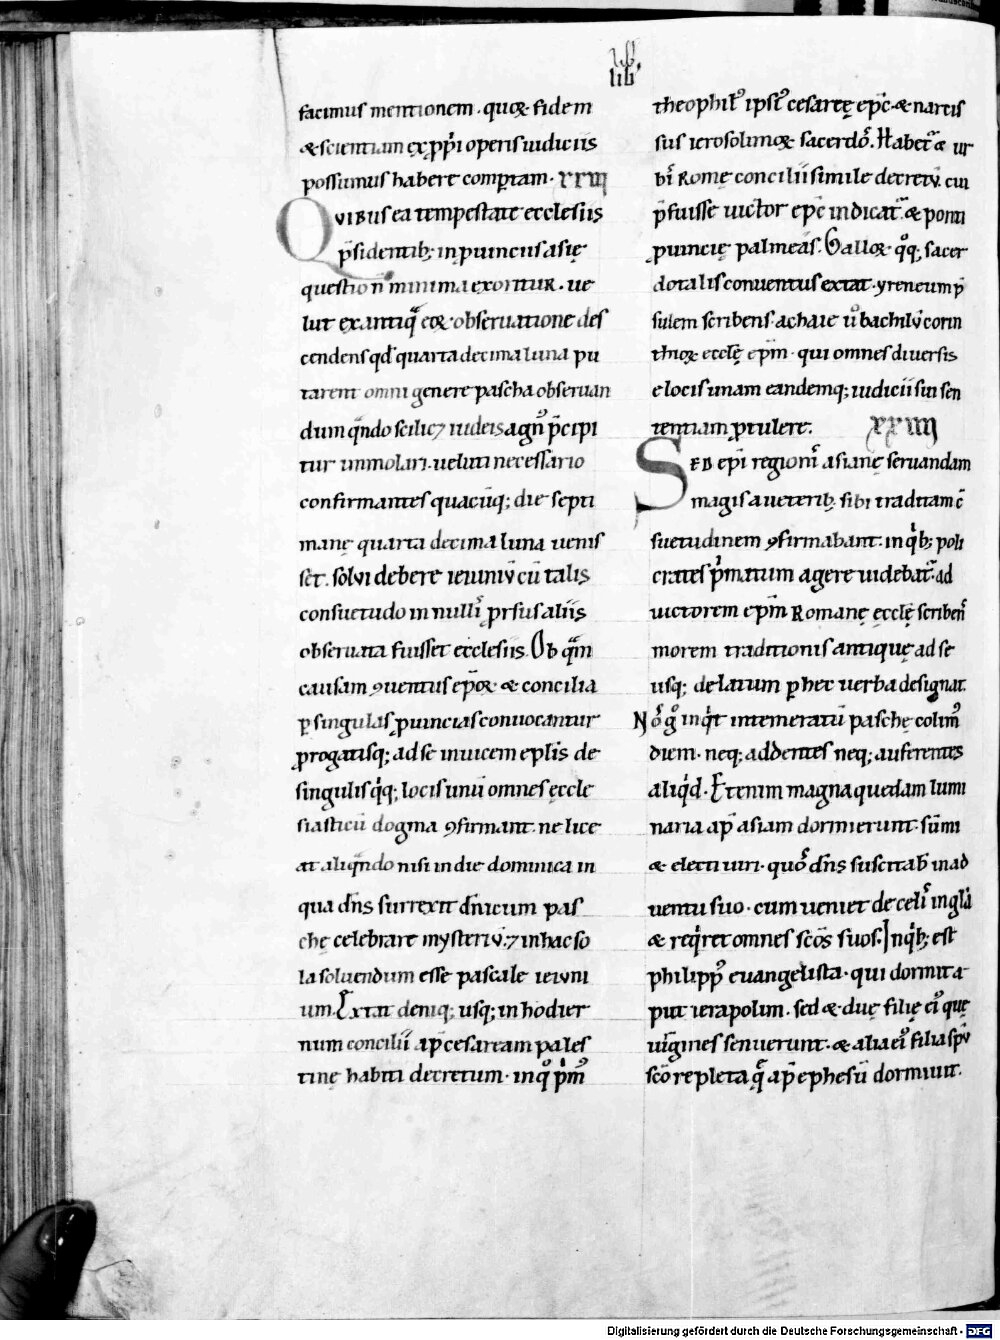 lib'
facimus mentionem. quoꝝ fidem
& scientiam ex ꝓpͥi operis iudiciis
possumus habere comptam. xxiii
Qvibus ea tempestate ecclesiis
p̄sidentib; in ꝓuinciis asię
questio n̄ minima exoritur. ue
lut ex antiq̄ eoꝝ obseruatione des
cendens qd̓ quarta decima luna pu
tarent omni genere pascha obseruan
dum qn̄do scilic⁊ iudeis agn᷒ p̄cipi
tur immolari. ueluti necessario
confirmantes quacūq; die septi
manę quarta decima luna uenis
sēt. solui debere ieiuniū cū talis
consuetudo in nulliˢ prsus aliis
obseruata fuisset ecclesiis. Ob qm̄
causam ꝯuentus ep̄oꝝ & concilia
ꝑ singulas ꝓuincias conuocantur
ꝓrogatisq; ad se inuicem eplis̄ de
singulis qͥq; locis unū omnes eccle
siasticū dogma ꝯfirmant. ne lice
at aliqn̄do nisi in die dominica in
qua dn̄s surrexit dn̄icum pas
chę celebrare mysteriū. ⁊ in hac so
la soluendum esse pascale ieiuni
um. Extat deniq; usq; in hodier
num conciliī ap̄ cesaream pales
tinę habiti decretum. in qͦ pͥm᷒
theophil᷒ ipsi᷒ cesaręę ep̄c. & narcis
sus ierosolimoꝝ sacerdō. Habet̄ & ur
bīˢ Romę concilii simile decretū. cui
p̄fuisse uictor ep̄c indicat̄. & ponti
ꝓuincię palmeas. Galloꝝ qͦq; sacer
dotalis conuentus extat. yreneum p̄
sulem scribens. achaie ū bachilū corin
thioꝝ ecclę̄ ep̄m. qui omnes diuersis
e locis unam eandemq; iudicii sui sen
tentiam ꝓtulere. xxiiii
Sed ep̄i regioniˢ asianę seruandam
magis a ueterib; sibi traditam c̄
suetudinem ꝯfirmabant. in qͥb; poli
crates pͥmatum agere uidebat̄. ad
uictorem ep̄m Romanę ecclę̄ scribenˢ
morem traditionis antiquę ad se
usq; delatum ꝑ hec uerba designat.
Noˢ gͦ inqͥt intemeratū paschę colim᷒
diem. neq; addentes neq; auferentes
aliqͥd. Etenim magna quedam lumi
naria ap̄ asiam dormierunt. sūmi
& electi uiri. quoˢ dn̄s suscitab̄ in ad
uentu suo. cum ueniet de celiˢ in gl̄a
& reqͥret omnes sc̄os suos. In qͥb; est
philipp᷒ euangelista. qui dormit a
put ierapolim. sed & duę filię ei᷒ quę
uirgines senuerunt. & alia ei᷒ filia spū
sc̄o repleta q̄ ap̄ ephesū dormiuit.
Digitalisierung gefördert durch die Deutsche Forschungsgemeinschaft - DFG